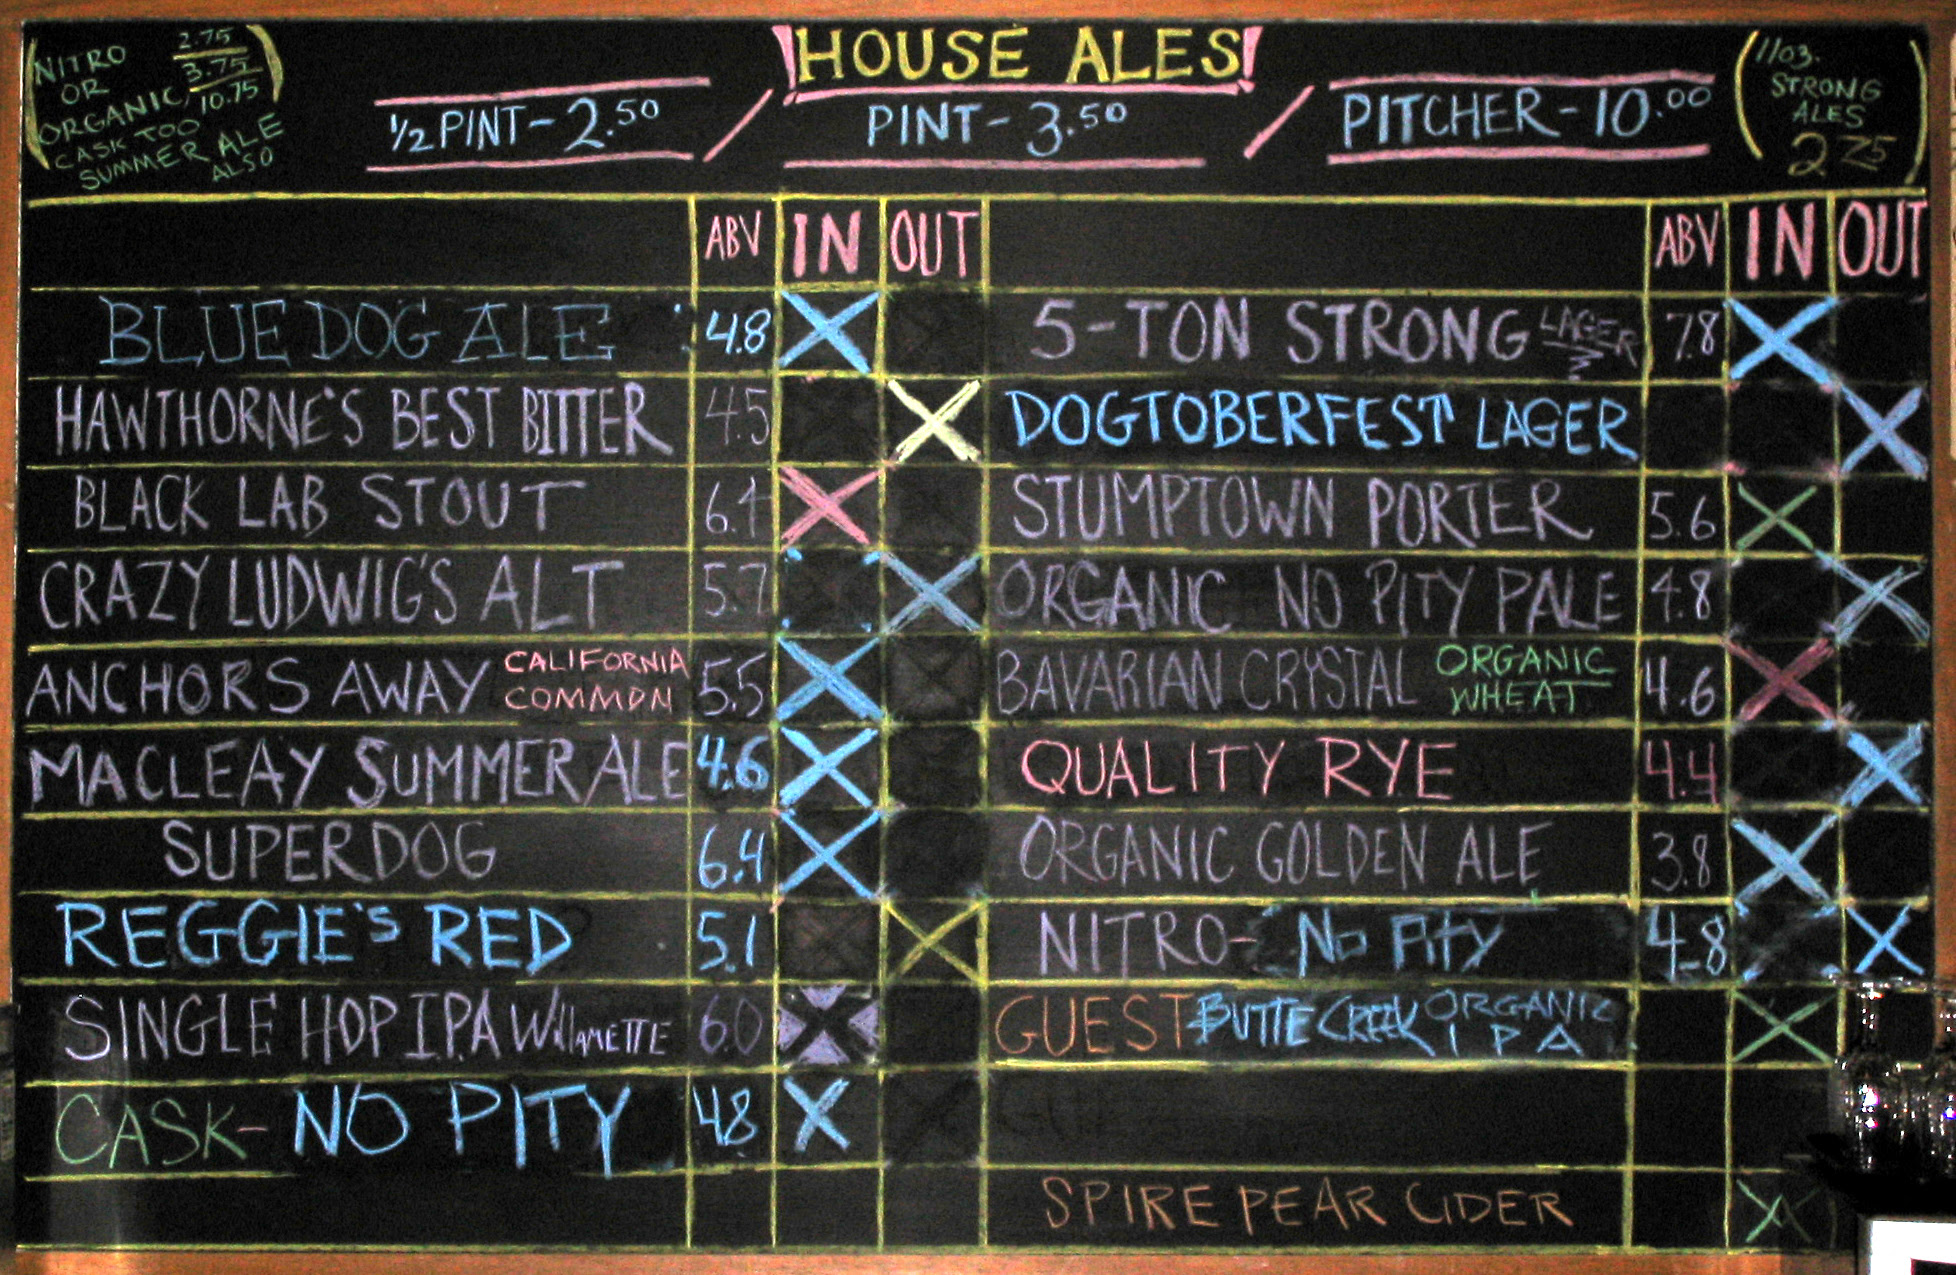 NITRO 2.75
OR 3.75
ORGANIC, 10.75
CASK TOO
SUMMER ALE
ALSO
HOUSE ALES
1/2 PINT - 2.50 / PINT - 3.50 / PITCHER - 10.00
11 OZ.
STRONG
ALES
2 75
ABV IN OUT
BLUE DOG ALE 4.8 X
HAWTHORNE'S BEST BITTER 4.5 X
BLACK LAB STOUT X
CRAZY LUDWIG'S ALT 5.7 X
ANCHORS AWAY CALIFORNIA COMMON 5.5 X
MACLEAY SUMMER ALE 4.6 X
SUPERDOG 6.4 X
REGGIE'S RED 5.1 X
SINGLE HOP I.P.A WillAMETTE 6.0 X
CASK - NO PITY 4.8 X
ABV IN OUT
5-TON STRONG LAGER 7.8 X
DOGTOBERFEST LAGER X
STUMPTOWN PORTER 5.6 X
ORGANIC NO PITY PALE 4.8 X
BAVARIAN CRYSTAL ORGANIC WHEAT 4.6 X
QUALITY RYE 4.4 X
ORGANIC GOLDEN ALE 3.8 X
NITRO - No Pity 4.8 X
GUEST BUTTE CREEK ORGANIC IPA X
SPIRE PEAR CIDER X